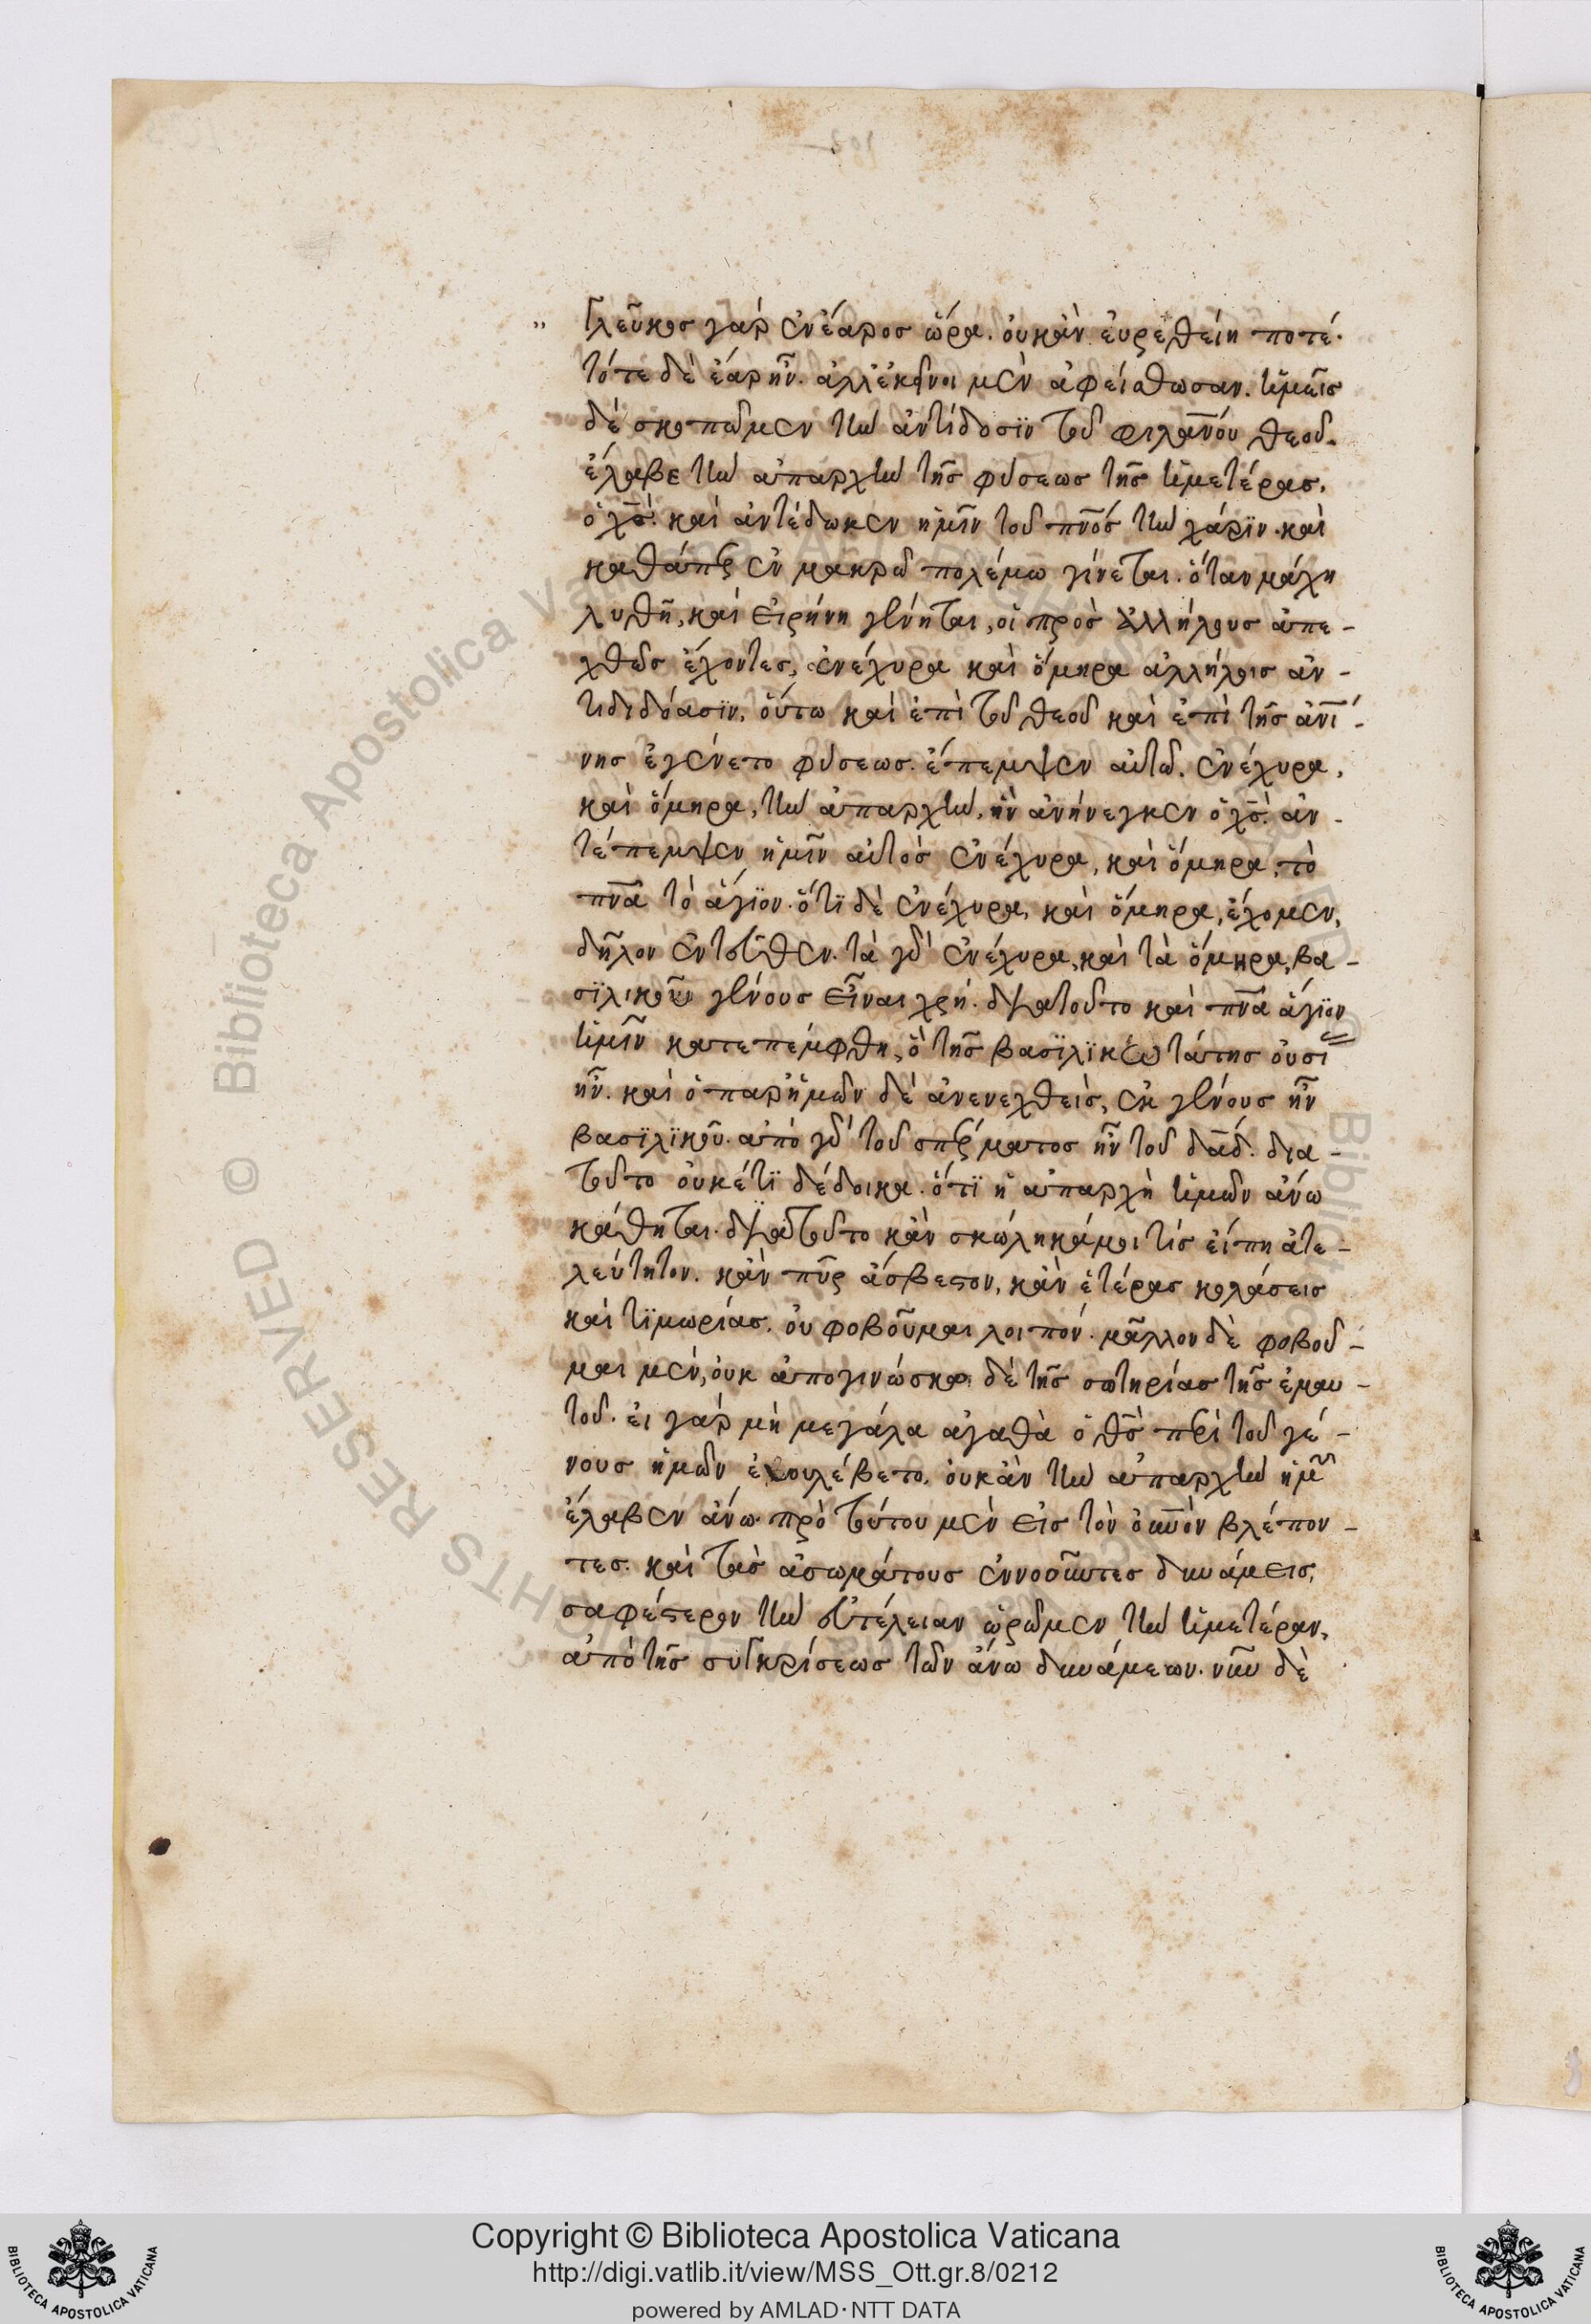 γλεῦκος γὰρ ἐν ἔαρος ὥρα. οὐκ ἂν εὑρεθείη ποτέ.
τότε δὲ ἔαρ ἦν. ἀλλ' ἐκεῖνοι μὲν ἀφείσθωσαν. ἡμεῖς
δὲ σκοπῶμεν τὴν ἀντίδοσϊν τοῦ φιλαν̅ου θεοῦ.
ἔλαβε τὴν ἀπαρχὴν τῆς φύσεως τῆς ἡμετέρας,
ὁ χ̅ς̅. καὶ ἀντέδωκεν ἡμῖν τοῦ πν̅ος τὴν χάρϊν. καὶ
καθάπερ ἐν μακρῶ πολέμω γίνεται. ὅταν μάχη
λυθῆ, καὶ εἰρήνη γένηται, οἱ πρὸς ἀλλήλους ἀπε-
χθῶς ἔχοντες, ἐνέχυρα καὶ ὅμηρα ἀλλήλοις ἀν-
τιδιδόασϊν, οὕτω καὶ ἐπὶ τοῦ θεοῦ καὶ ἐπὶ τῆς ἀν̅ί-
νης ἐγένετο φύσεως. ἔπεμψεν αὐτῶ. ἐνέχυρα,
καὶ ὅμηρα, τὴν ἀπαρχὴν, ἣν ἀνήνεγκεν ὁ χ̅ς̅. ἀν-
τέπεμψεν ἡμῖν αὐτὸς ἐνέχυρα, καὶ ὅμηρα, τὸ
πν̅α τὸ ἅγϊον. ὅτϊ δὲ ἐνέχυρα, καὶ ὅμηρα, ἔχομεν,
δῆλον ἐντεῦθεν. τὰ γὰρ ἐνέχυρα, καὶ τὰ ὅμηρα, βα-
σϊλικοῦ γένους εἶναι χρή. διατοῦτο καὶ πν̅α ἅγϊον
ἡμῖν κατεπέμφθη, ὃ τῆς βασϊλϊκωτάτης οὐσί
ἦν. καὶ ὁ παρ' ἡμῶν δὲ ἀνενεχθεὶς, ἐκ γένους ἦν
βασϊλϊκοῦ. ἀπὸ γὰρ τοῦ σπέρματος ἦν τοῦ δα̅δ. δια-
τοῦτο οὐκέτϊ δέδοικα. ὅτϊ ἡ ἀπαρχὴ ἡμῶν ἄνω
κάθηται. διατοῦτο κἂν σκώληκά μοι τίς εἴπη ἀτε-
λεύτητον. κἂν πῦρ ἄσβεστον, κἂν ἑτέρας κολάσεις
καὶ τϊμωρίας. οὐ φοβοῦμαι λοιπόν. μᾶλλον δὲ φοβοῦ-
μαι μὲν, οὐκ ἀπογινώσκω δὲ τῆς σωτηρίας τῆς ἐμαυ-
τοῦ. εἰ γὰρ μὴ μεγάλα ἀγαθὰ ὁ θ̅ς̅ περὶ τοῦ γέ-
νους ἡμῶν ἐβουλέβετο, οὐκ ἂν τὴν ἀπαρχὴν ἡμῶν
ἔλαβεν ἄνω. πρὸ τούτου μὲν εἰς τὸν οὐν̅ὸν βλέπον-
τες. καὶ τὰς ἀσωμάτους ἐννοοῦντες δυνάμεις,
σαφέστερον τὴν εὐτέλειαν ὡρῶμεν τὴν ἡμετέραν,
ἀπὸ τῆς συγκρίσεως τῶν ἄνω δυνάμεων. νῦν δὲ
Copyright © Biblioteca Apostolica Vaticana
http://digi.vatlib.it/view/MSS_Ott.gr.8/0212
powered by AMLAD·NTT DATA